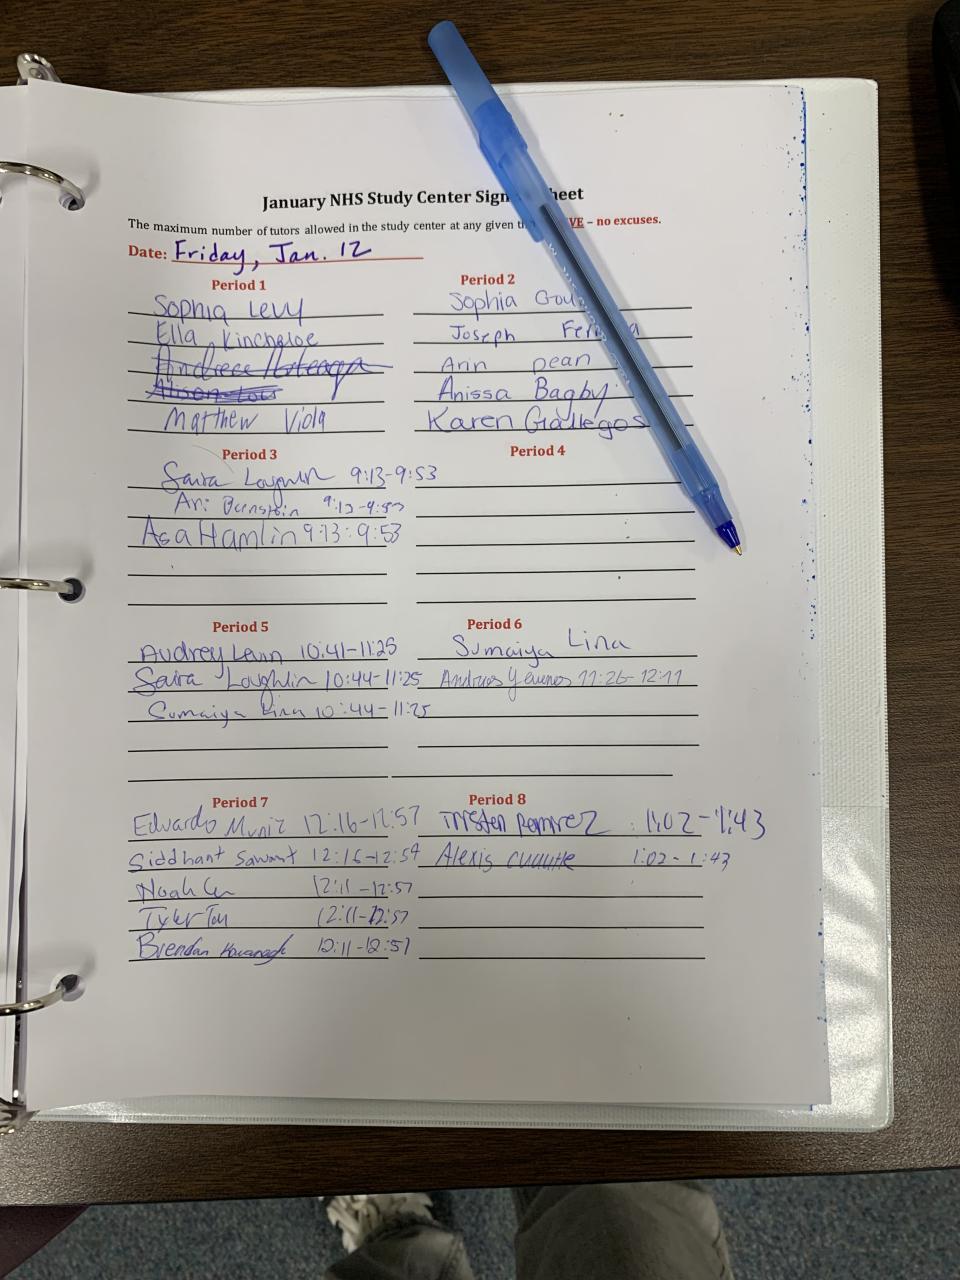 January NHS Study Center Sign heet
The maximum number of tutors allowed in the study center at any given VE – no excuses.
Date: Friday, Jan. 12
Period 1
Sophia Levy
Ella Kincheloe
Matthew Viola
Period 2
Sophia Gou
Joseph
Arin Dean
Anissa Bagby
Karen Giallegos
Period 3
Saira Loughlin 9:13-9:53
Ari Bernstein 9:13-9:53
Asa Hamlin 9:13-9:53
Period 4
Period 5
Audrey Levin 10:41-11:25
Saira Loughlin 10:44-11:25
Sumaiya Lina 10:44-11:25
Period 6
Sumaiya Lina
Andreas 11:26-12:11
Period 7
Eduardo Muniz 12:16-12:57
Siddhant Sawant 12:16-12:54
Noah 12:11-12:57
Tyler 12:11-12:57
Brendan Kavanagh 12:11-12:57
Period 8
Tristen Ramirez 1:02-1:43
Alexis 1:02-1:43